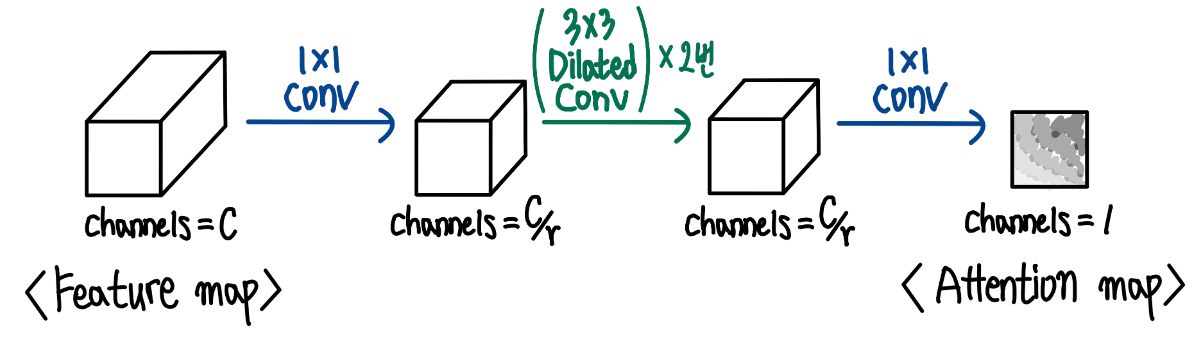 1x1
Conv
(3x3
Dilated
Conv) x 2번
1x1
Conv
channels = C
channels = C/r
channels = C/r
channels = 1
<Feature map>
<Attention map>